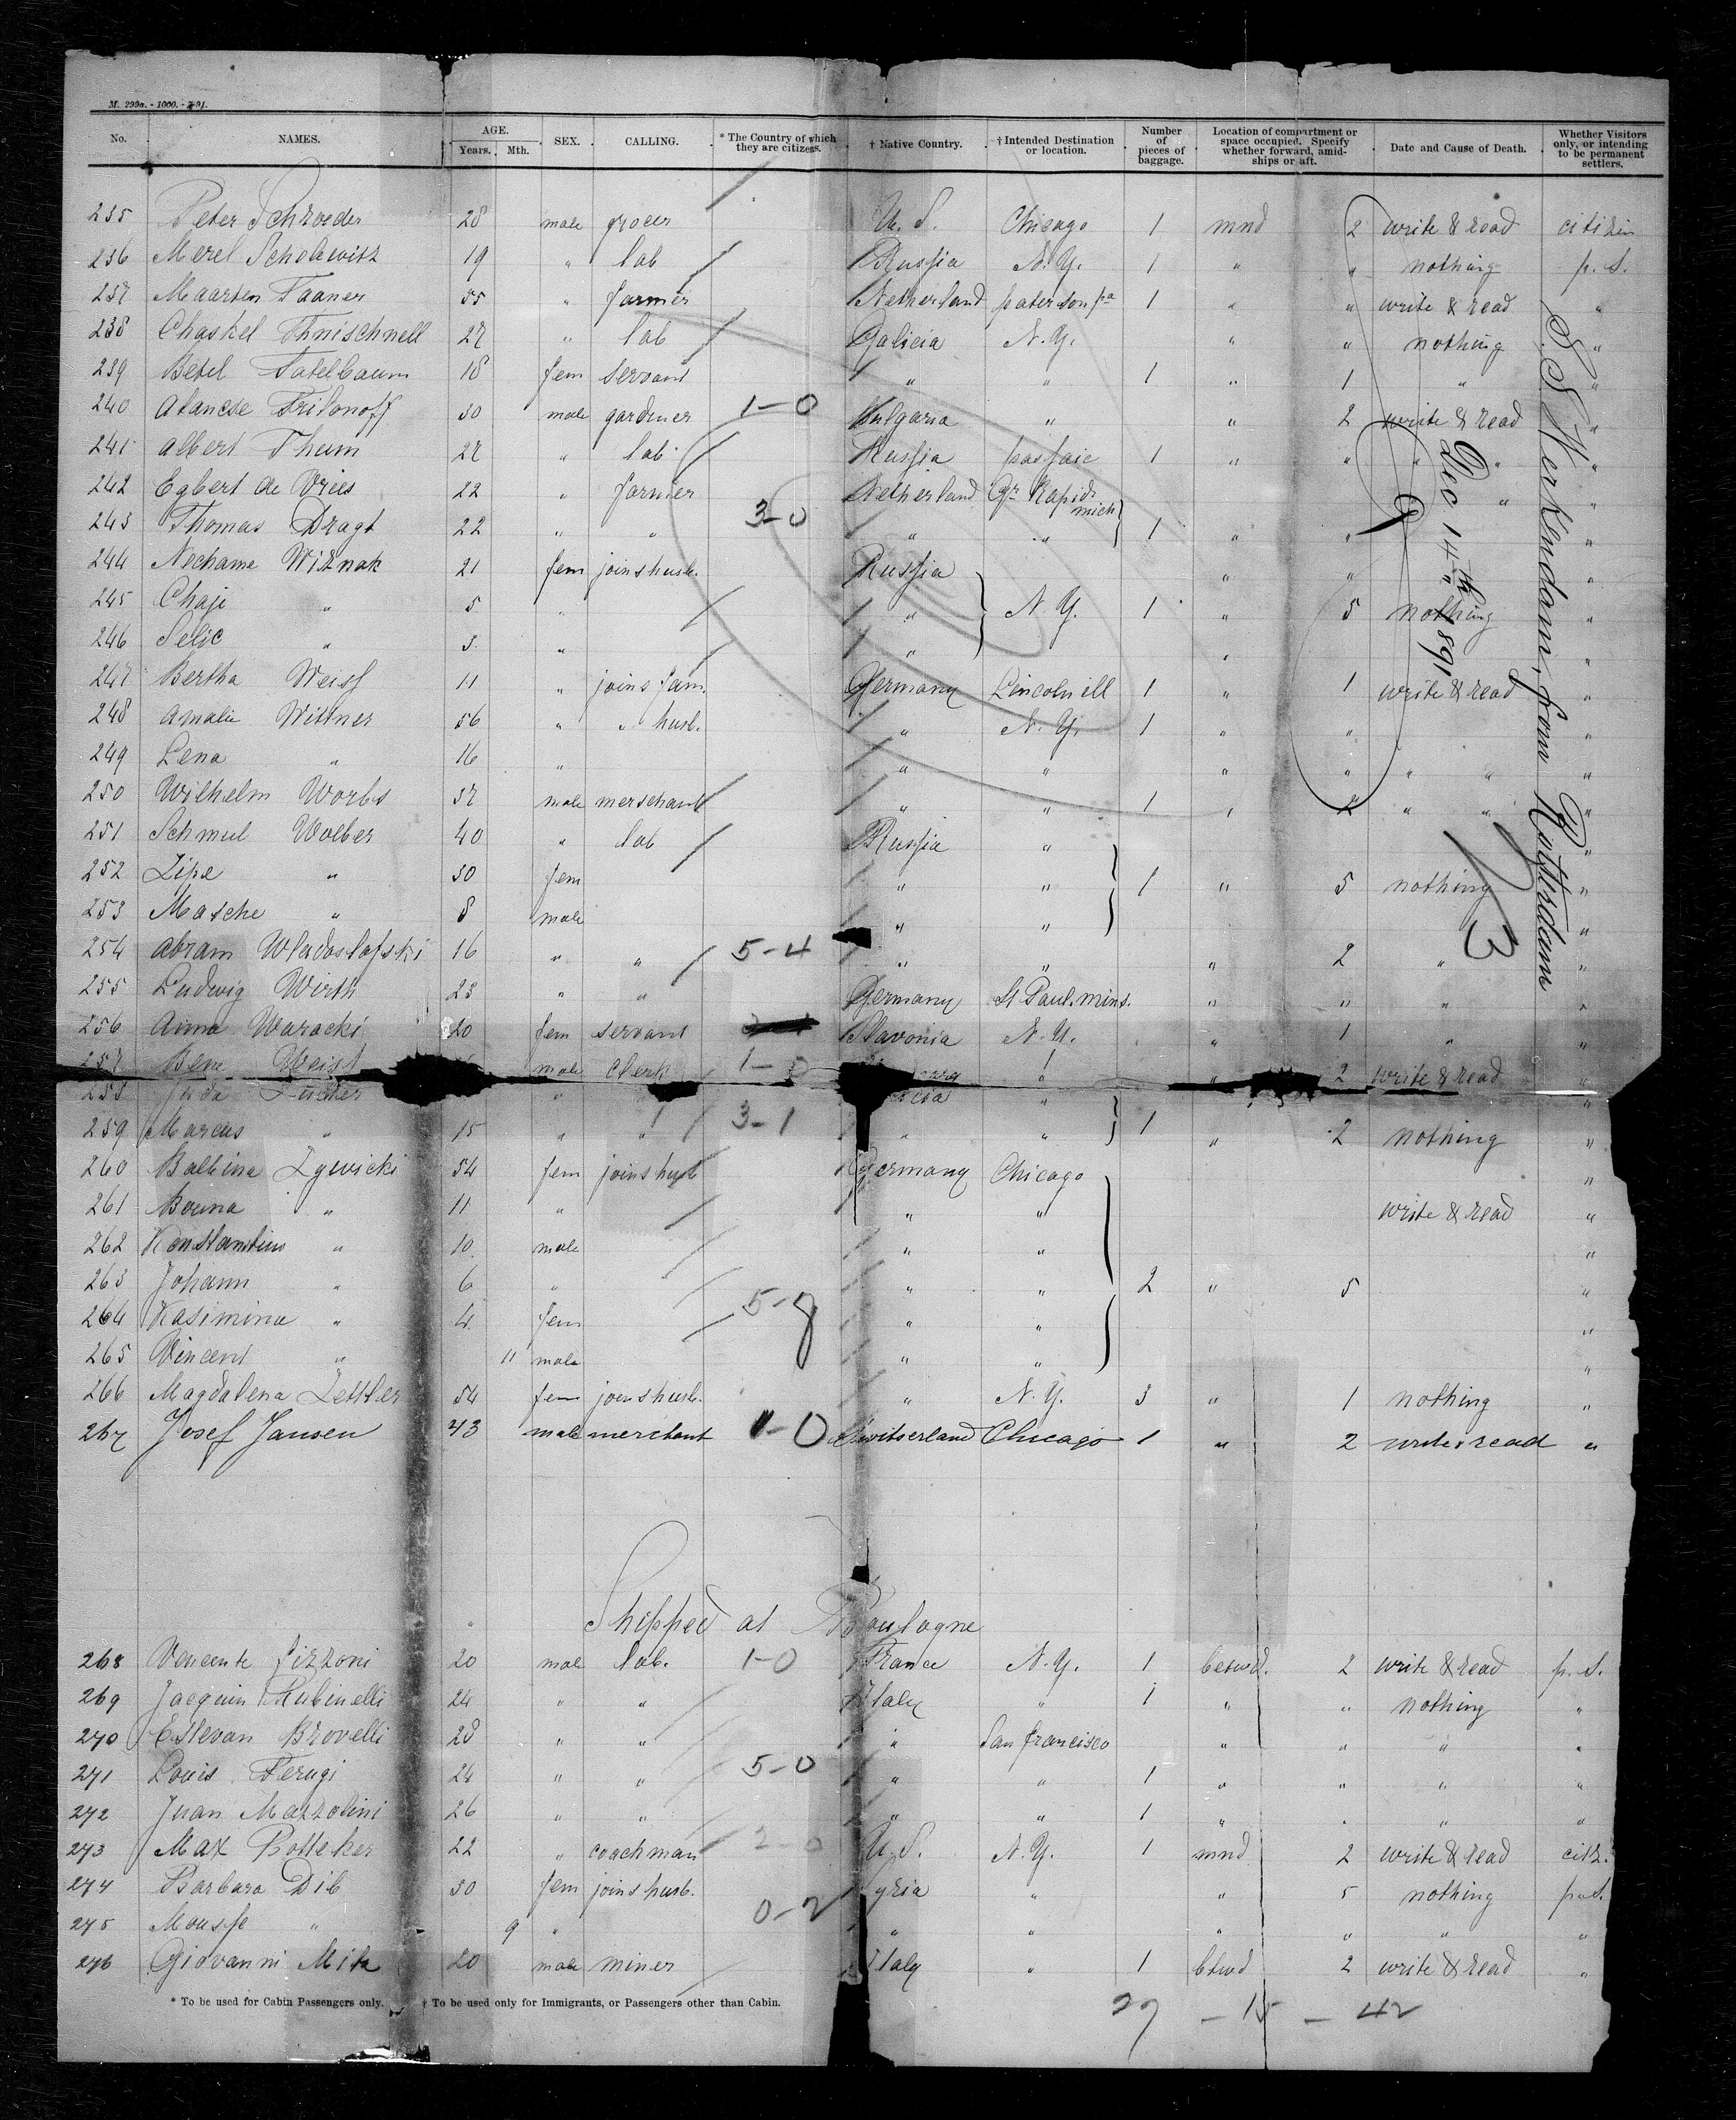 M. 299a. - 1000. - 7-91.
No. NAMES. AGE. Years. Mth. SEX. CALLING. * The Country of which they are citizens. † Native Country. † Intended Destination or location. Number of pieces of baggage. Location of compartment or space occupied. Specify whether forward, amidships or aft. Date and Cause of Death. Whether Visitors only, or intending to be permanent settlers.
235 Peter Schroeder 28 male grocer U. S. Chicago 1 mnd 2 write & read citizen
236 Merel 19 " lab Russia N. Y. 1 " " nothing p. S.
237 Maarten Taaner 55 " farmer Netherland paterson pa 1 " " write & read "
238 Chaskel 27 " lab Galicia N. Y. " " nothing "
239 Betel 18 fem servant " " 1 " 1 " "
240 30 male gardner 1-0 Bulgaria " " 2 write & read "
241 albert Thum 27 " lab Russia passaic 1 " " " " "
242 Egbert de Vries 22 " farmer Netherland Gr Rapids mich " "
243 Thomas Dragt 22 " " 3-0 " " 1 " " "
244 Nechame Wiznak 21 fem joins husb. Russia " " " "
245 Chaje " 5 " " N. Y. 1 " 5 nothing "
246 Selie " 3 " " " "
247 Bertha Weiss 11 " joins fam. Germany Lincoln ill 1 " 1 write & read "
248 amalie Wittner 56 " " husb. " N. Y. 1 " " "
249 Lena " 16 " " " " " " " "
250 Wilhelm Worbs 37 male merschant " " 1 " 2 " " "
251 Schmul Wolber 40 " lab Russia " "
252 Lipe " 30 fem " " 1 " 5 nothing "
253 Masche " 8 male " " "
254 abram Wladoslafski 16 " " 5-4 " " " 2 " "
255 Ludwig Wirth 23 " " Germany St Paul. mins. " " " "
256 anna Waracki 20 fem servant Slavonia N. Y. " 1 "
257 Weist male Clerk 1-0 " " 2 write & read "
258 Juda " " "
259 Marcus " 15 " " 3-1 " " 1 " 2 nothing "
260 Balbina Zywicki 54 fem joins husb Germany Chicago "
261 " 11 " " " write & read "
262 Konstantin " 10 male " " "
263 Johann " 6 " " " 2 " 5 "
264 Kasimina " 4 fem 5-8 " " "
265 Vincent " 11 male " " "
266 Magdalena Zettler 54 fem joins husb. " N. Y. 3 " 1 nothing "
267 Josef Jansen 43 male merchant 1-0 Switserland Chicago 1 " 2 write & read "
Shipped at Boulogne
268 Vencente Pizzoni 20 male lab. 1-0 France N. Y. 1 betwd. 2 write & read p. S.
269 Jacquin Rubinelli 24 " " Italy " 1 " " nothing "
270 Estevan Brovelli 28 " " " San francisco " " " "
271 Louis Ferugi 24 " " 5-0 " " 1 " " " "
272 Juan Mazzolini 26 " " " " 1 " " " "
273 Max Botteker 22 " coachman 2-0 U. S. N. Y. 1 mnd 2 write & read citz.
274 Barbara Dib 30 fem joins husb. Syria " " 5 nothing p. S.
275 " 9 " 0-2 " " " " " "
276 Giovanni 20 male miner Italy " 1 btwd 2 write & read "
* To be used for Cabin Passengers only. † To be used only for Immigrants, or Passengers other than Cabin.
27 - 15 - 42
S. S. Werkendam, from Rotterdam
Dec 14th 1891